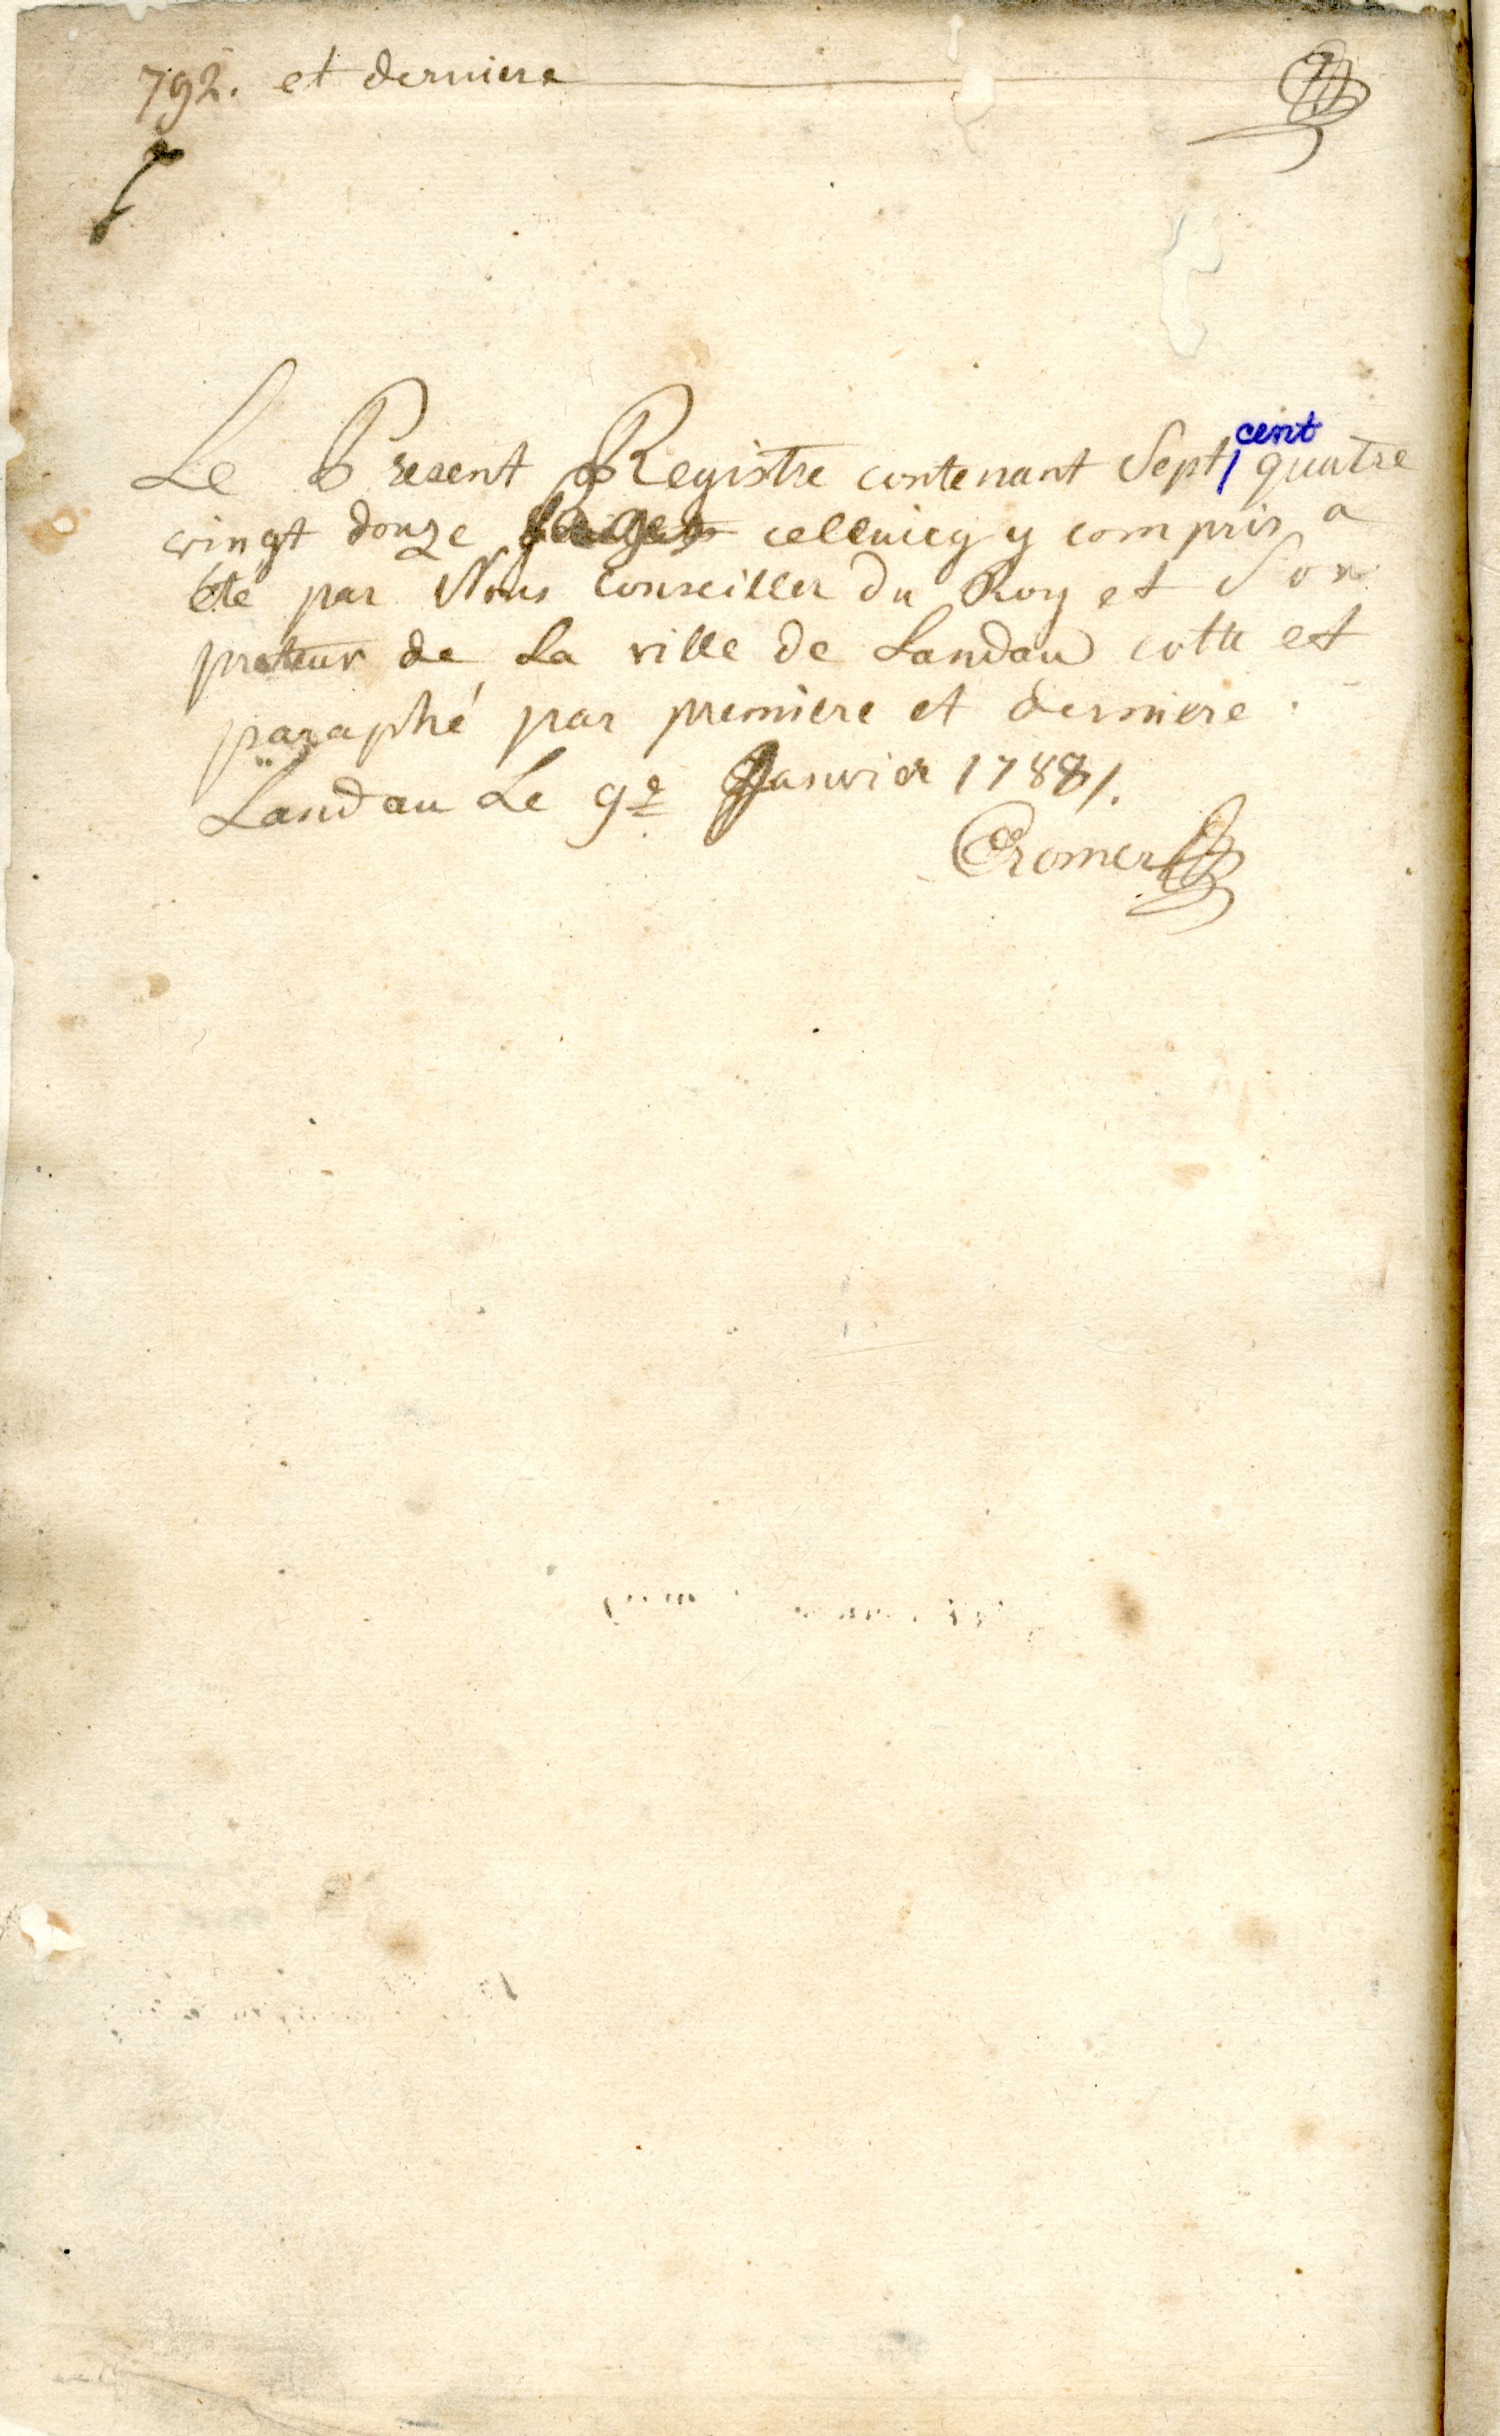 792. et derniere
cent
Le Present Registre contenant Sept quatre
vingt douze pages celluicy y compris a
été par Nous Conseiller du Roy et Son
preteur de La ville de Landau cotté et
paraphé par premiere et derniere.
Landau Le 9e Janvier 1788/.
Cromer